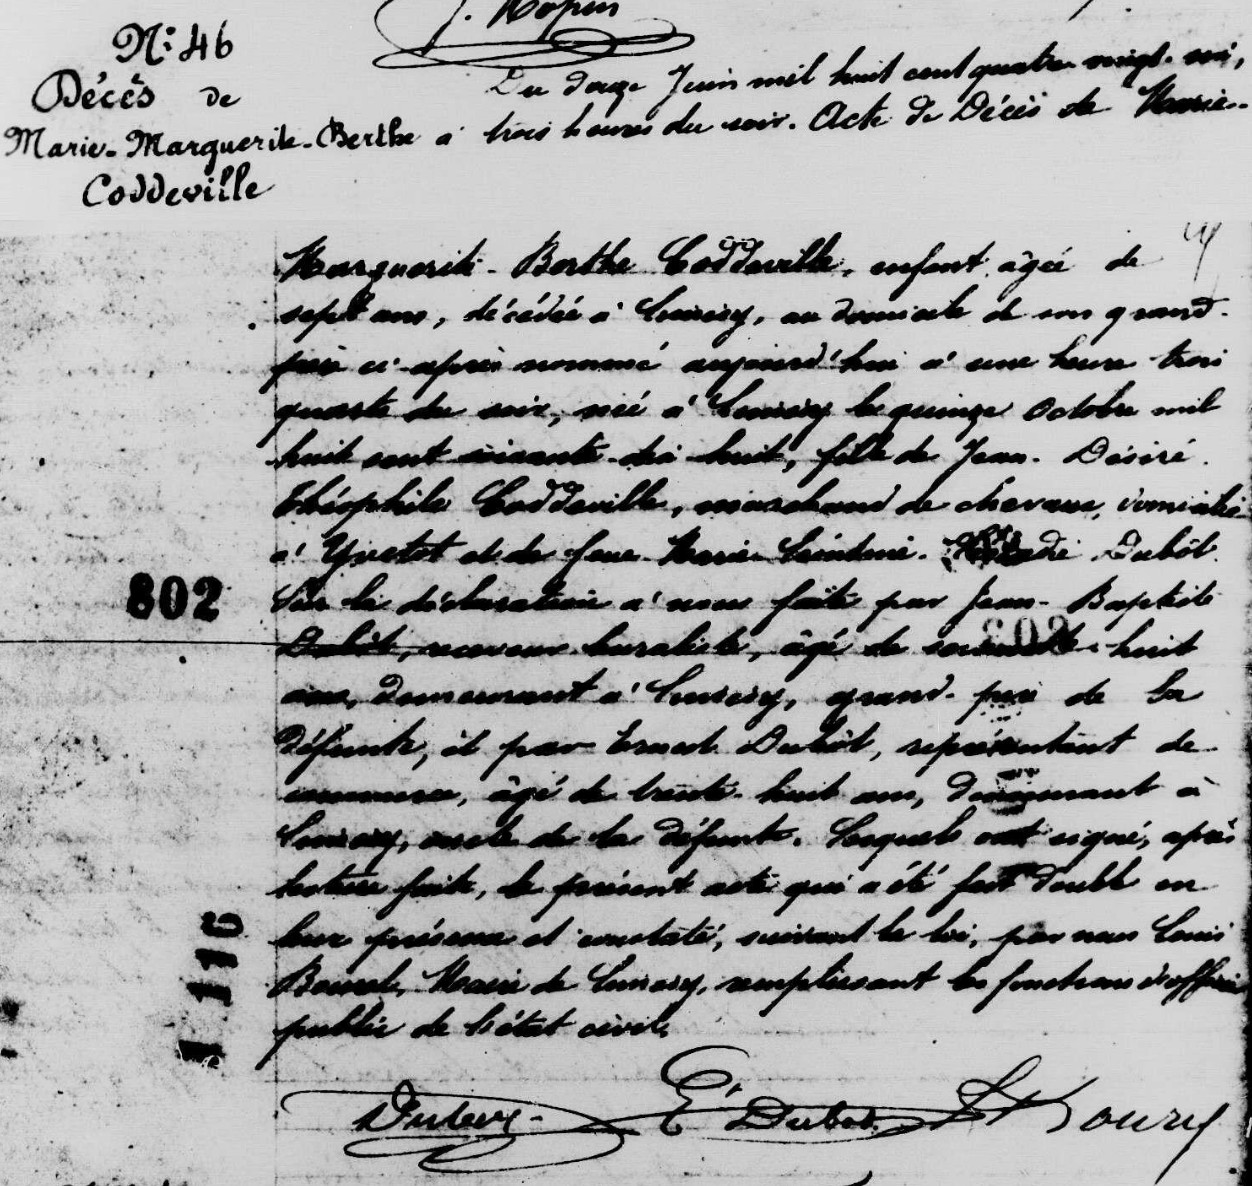 J. Hopin
N: 46
Décès de
Marie-Marguerite-Berthe
Coddeville
Du douze Juin mil huit cent quatre-vingt-six,
à trois heures du soir. Acte de Décès de Marie-
Marguerite-Berthe Coddeville, enfant âgée de
sept ans, décédée à Luneray, au domicile de son grand-
père ci-après nommé aujourd'hui à une heure trois
quarts du soir, née à Luneray le quinze Octobre mil
huit cent soixante-dix-huit, fille de Jean-Désiré
Théophile Coddeville, marchand de chevaux, domicilié
à Yvetot et de feue Marie Dubôt.
Sur la déclaration à nous faite par Jean-Baptiste
Dubôt, receveur buraliste, âgé de soixante-huit
ans, demeurant à Luneray, grand-père de la
défunte, et par Ernest Dubôt, représentant de
commerce, âgé de trente-huit ans, demeurant à
Luneray, oncle de la défunte. Lesquels ont signé, après
lecture faite, le présent acte qui a été fait double en
leur présence et constaté, suivant la loi, par nous Louis
Maire de Luneray, remplissant les fonctions d'officier
public de l'état civil.
802
1116
Dubot E. Dubot